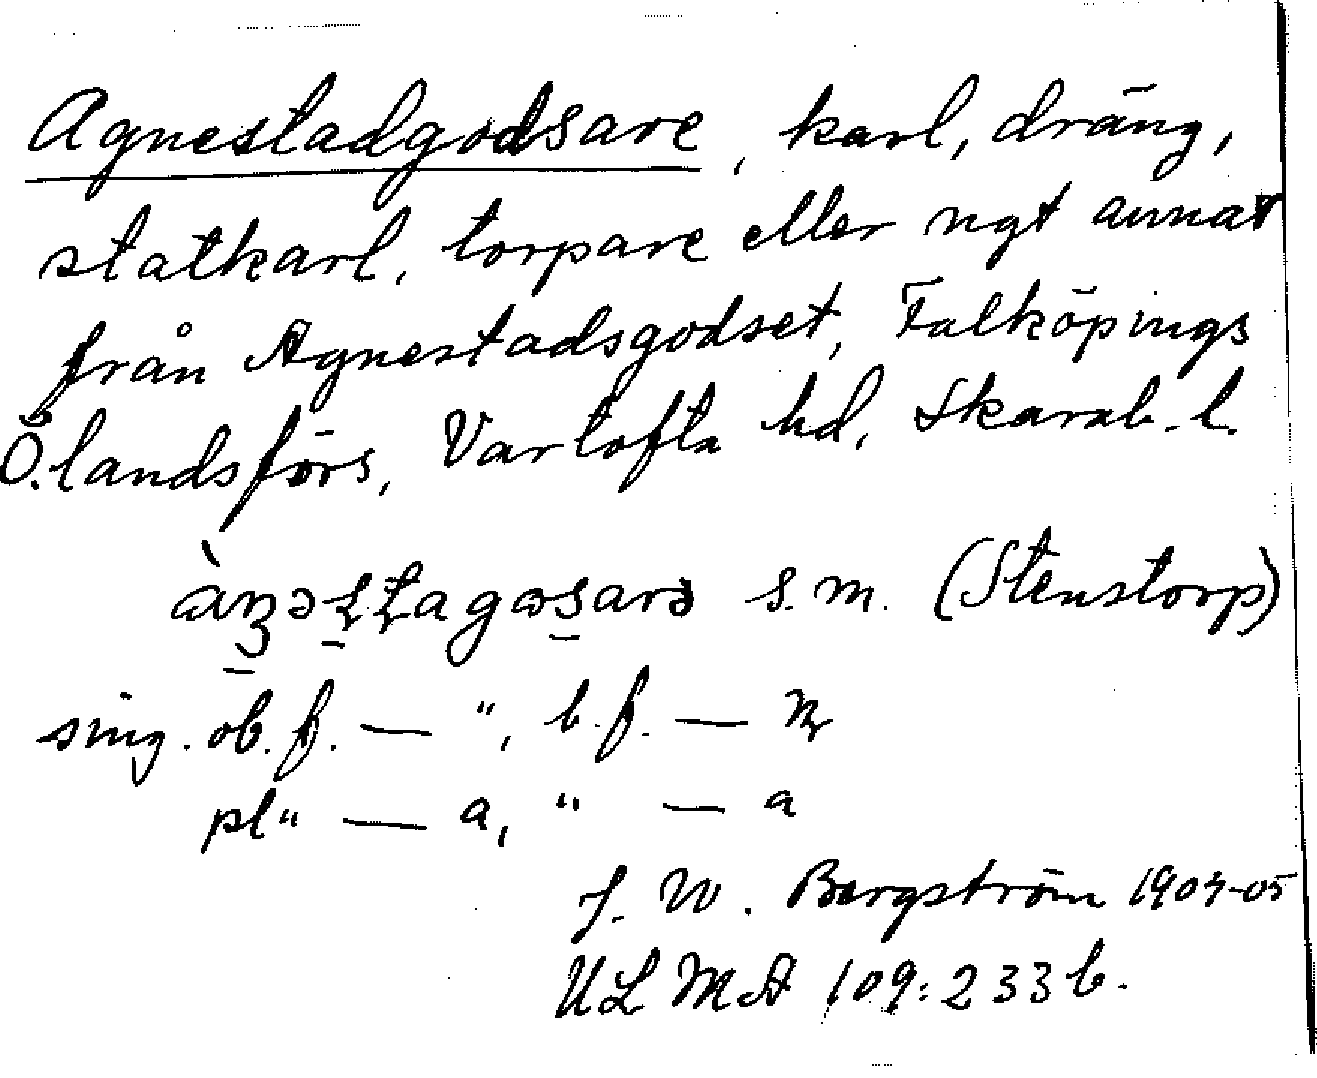 Agnestadgodsare, karl, dräng,
statkarl, torpare eller ngt annat
från Agnestadsgodset, Falköpings
Ö. landsförs, Vartofta hd, Skarab. l.
s. m. (Stenstorp)
sing. ob. f. — ", b. f. — n
pl " — a, " — a
J. W. Bergström 1904-05
ULMA 109:233 b.